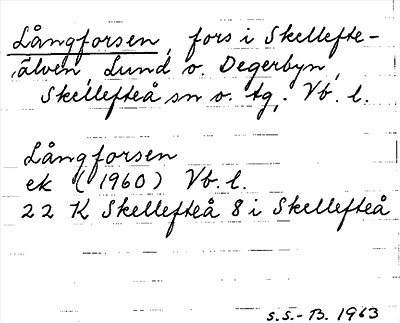 Långforsen, fors i Skellefte-
älven, Lund o. Degerbyn,
Skellefteå sn o. tg, Vb. l.
Långforsen
ek (1960) Vb. l.
22 K Skellefteå 8 i Skellefteå
S.S.-B. 1963